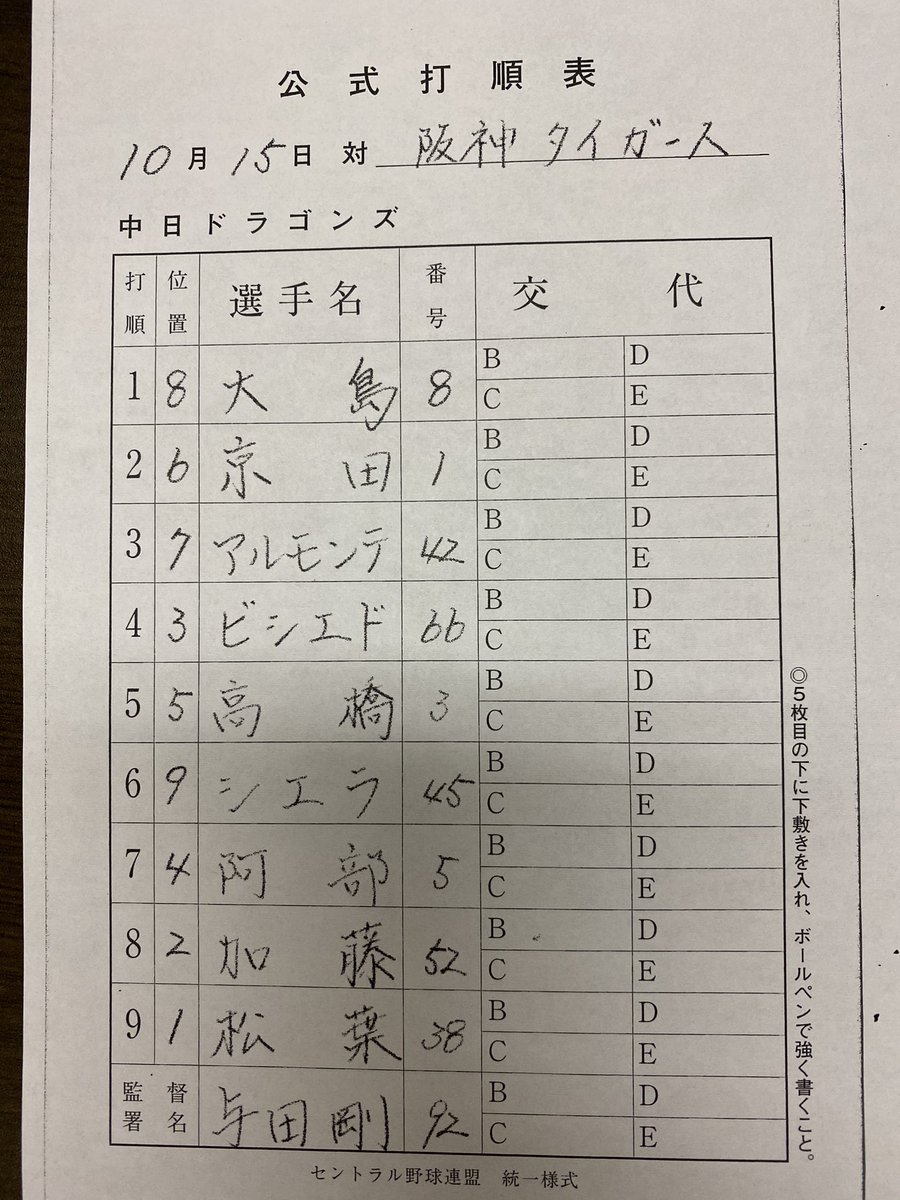 公式打順表
10月15日 対 阪神タイガース
中日ドラゴンズ
打順 位置 選手名 番号 交代
1 8 大島 8 B D
C E
2 6 京田 1 B D
C E
3 7 アルモンテ 42 B D
C E
4 3 ビシエド 66 B D
C E
5 5 高橋 3 B D
C E
6 9 シエラ 45 B D
C E
7 4 阿部 5 B D
C E
8 2 加藤 52 B D
C E
9 1 松葉 38 B D
C E
監督署名 与田剛 92 B D
C E
◎5枚目の下に下敷きを入れ、ボールペンで強く書くこと。
セントラル野球連盟 統一様式